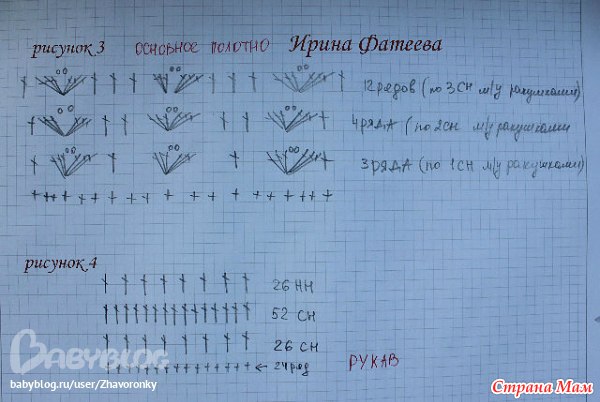 рисунок 3 основное полотно Ирина Фатеева
12 редов (по 3 СН м/у ракушками)
4 ряда (по 2 СН м/у ракушками
3 ряда (по 1 СН м/у ракушками)
рисунок 4
26 НН
52 СН
26 СН
← 24 ряд РУКАВ
BABYBLOG
babyblog.ru/user/Zhavoronky
Страна Мам